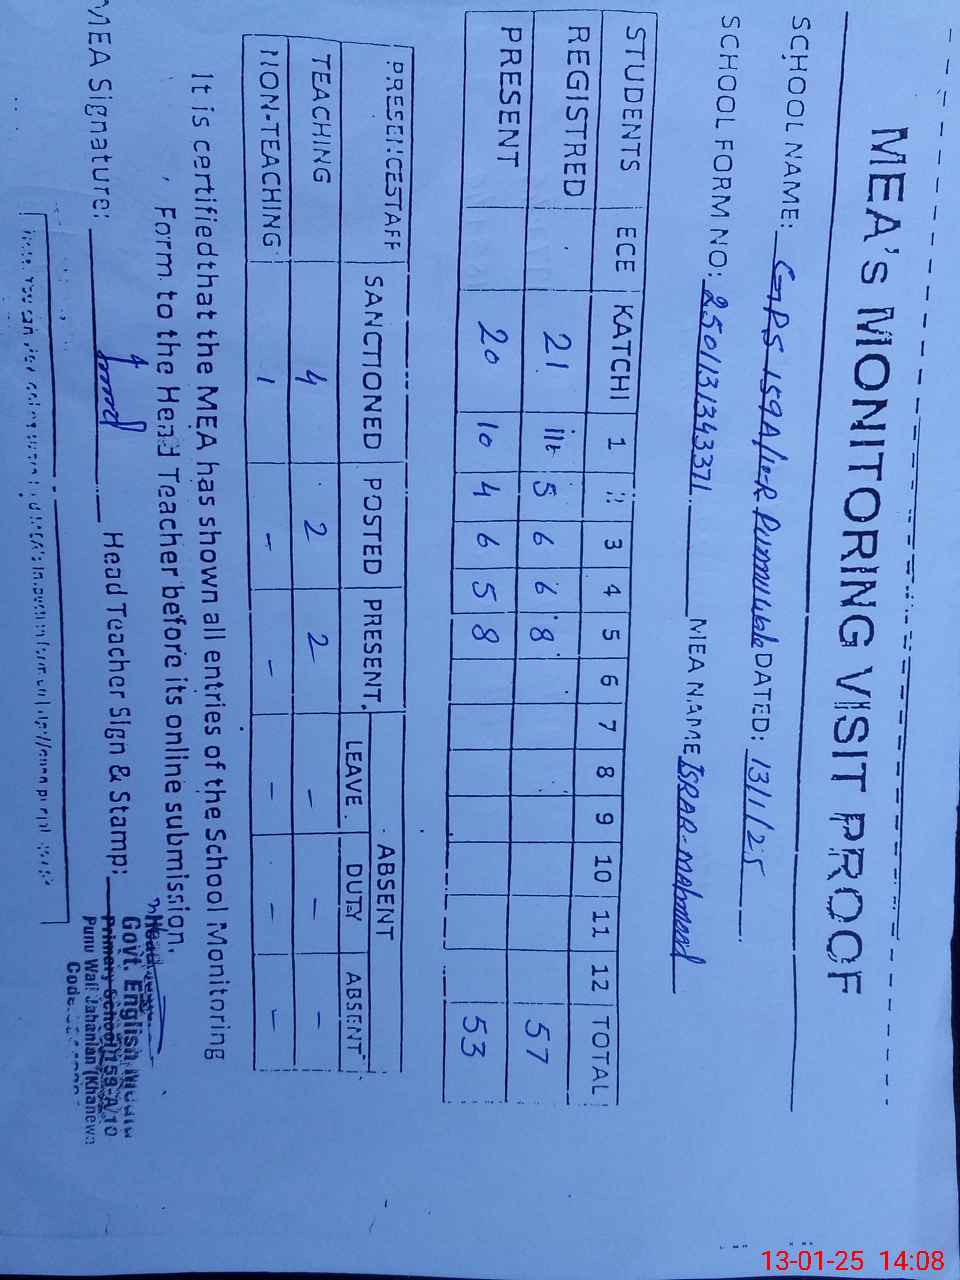 MEA'S MONITORING VISIT PROOF
SCHOOL NAME: GPS 159A/10-R Punnuwala DATED: 13/1/25
SCHOOL FORM NO: MEA NAME ISRAR-Mahmood
STUDENTS ECE KATCHI 1 3 4 5 6 7 8 9 10 11 12 TOTAL
REGISTRED 21 5 6 6 8 57
PRESENT 20 10 4 6 5 8 53
PRESENCESTAFF SANCTIONED POSTED PRESENT ABSENT
LEAVE DUTY ABSENT
TEACHING 4 2 2 - - -
NON-TEACHING 1 - - - - -
It is certifiedthat the MEA has shown all entries of the School Monitoring
Form to the Head Teacher before its online submission.
MEA Signature: Head Teacher Sign & Stamp:
Head
Govt. English
Primary School 159-A/10
Punu Wali Jahanian (Khanewa
Code
13-01-25 14:08